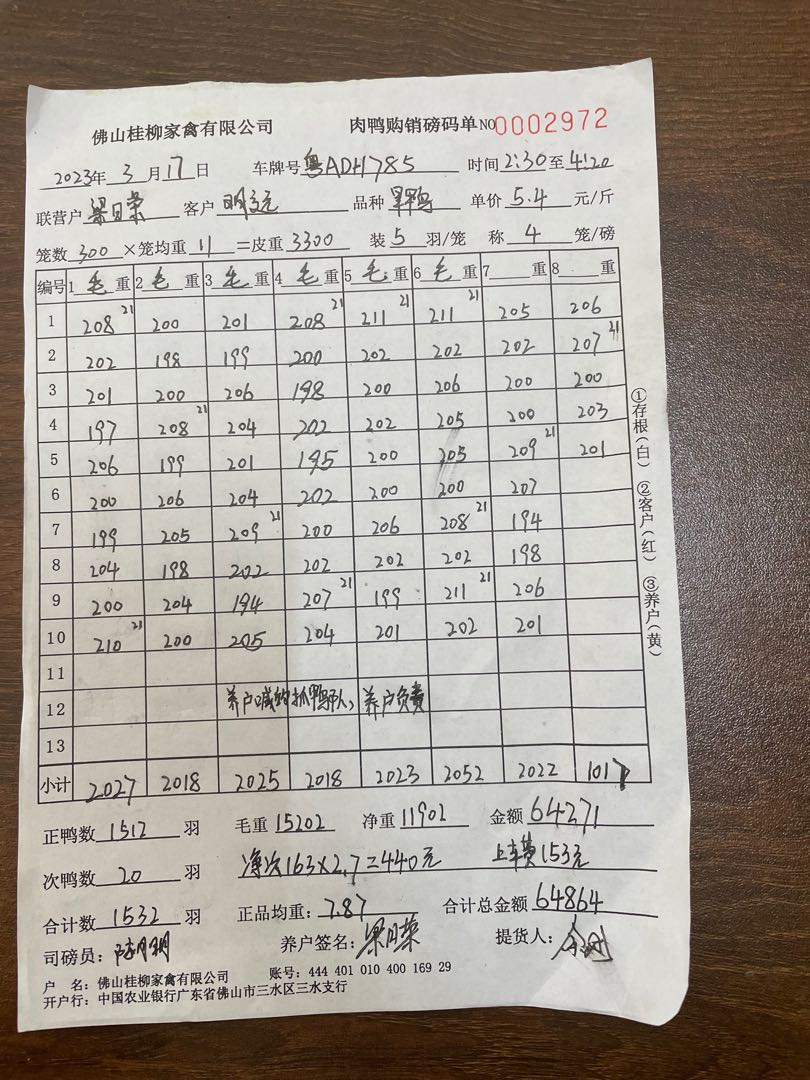 佛山桂柳家禽有限公司 肉鸭购销磅码单 NO 0002972
2023年 3 月 17 日 车牌号 粤ADH785 时间 2:30 至 4:20
联营户 梁日荣 客户 品种 单价 5.4 元/斤
笼数 300 ×笼均重 11 =皮重 3300 装 5 羽/笼 称 4 笼/磅
编号 1 毛 重 2 毛 重 3 毛 重 4 毛 重 5 毛 重 6 毛 重 7 重 8 重
1 208 21 200 201 208 21 211 21 211 21 205 206
2 202 198 199 200 202 202 202 207 21
3 201 200 206 198 200 206 200 200
4 197 208 21 204 202 202 205 200 203
5 206 199 201 195 200 205 209 21 201
6 200 206 204 202 200 200 207
7 199 205 209 21 200 206 208 21 194
8 204 198 202 202 202 202 198
9 200 204 194 207 21 199 211 21 206
10 210 21 200 205 204 201 202 201
11
12 养户喊的抓鸭队,养户负责
13
小计 2027 2018 2025 2018 2023 2052 2022 1017
①存根(白) ②客户(红) ③养户(黄)
正鸭数 1512 羽 毛重 15202 净重 11902 金额 64271
次鸭数 20 羽 净次163×2.7=440元 上车费153元
合计数 1532 羽 正品均重: 7.87 合计总金额 64864
司磅员: 养户签名: 梁日荣 提货人:
户 名: 佛山桂柳家禽有限公司 账号: 444 401 010 400 169 29
开户行: 中国农业银行广东省佛山市三水区三水支行